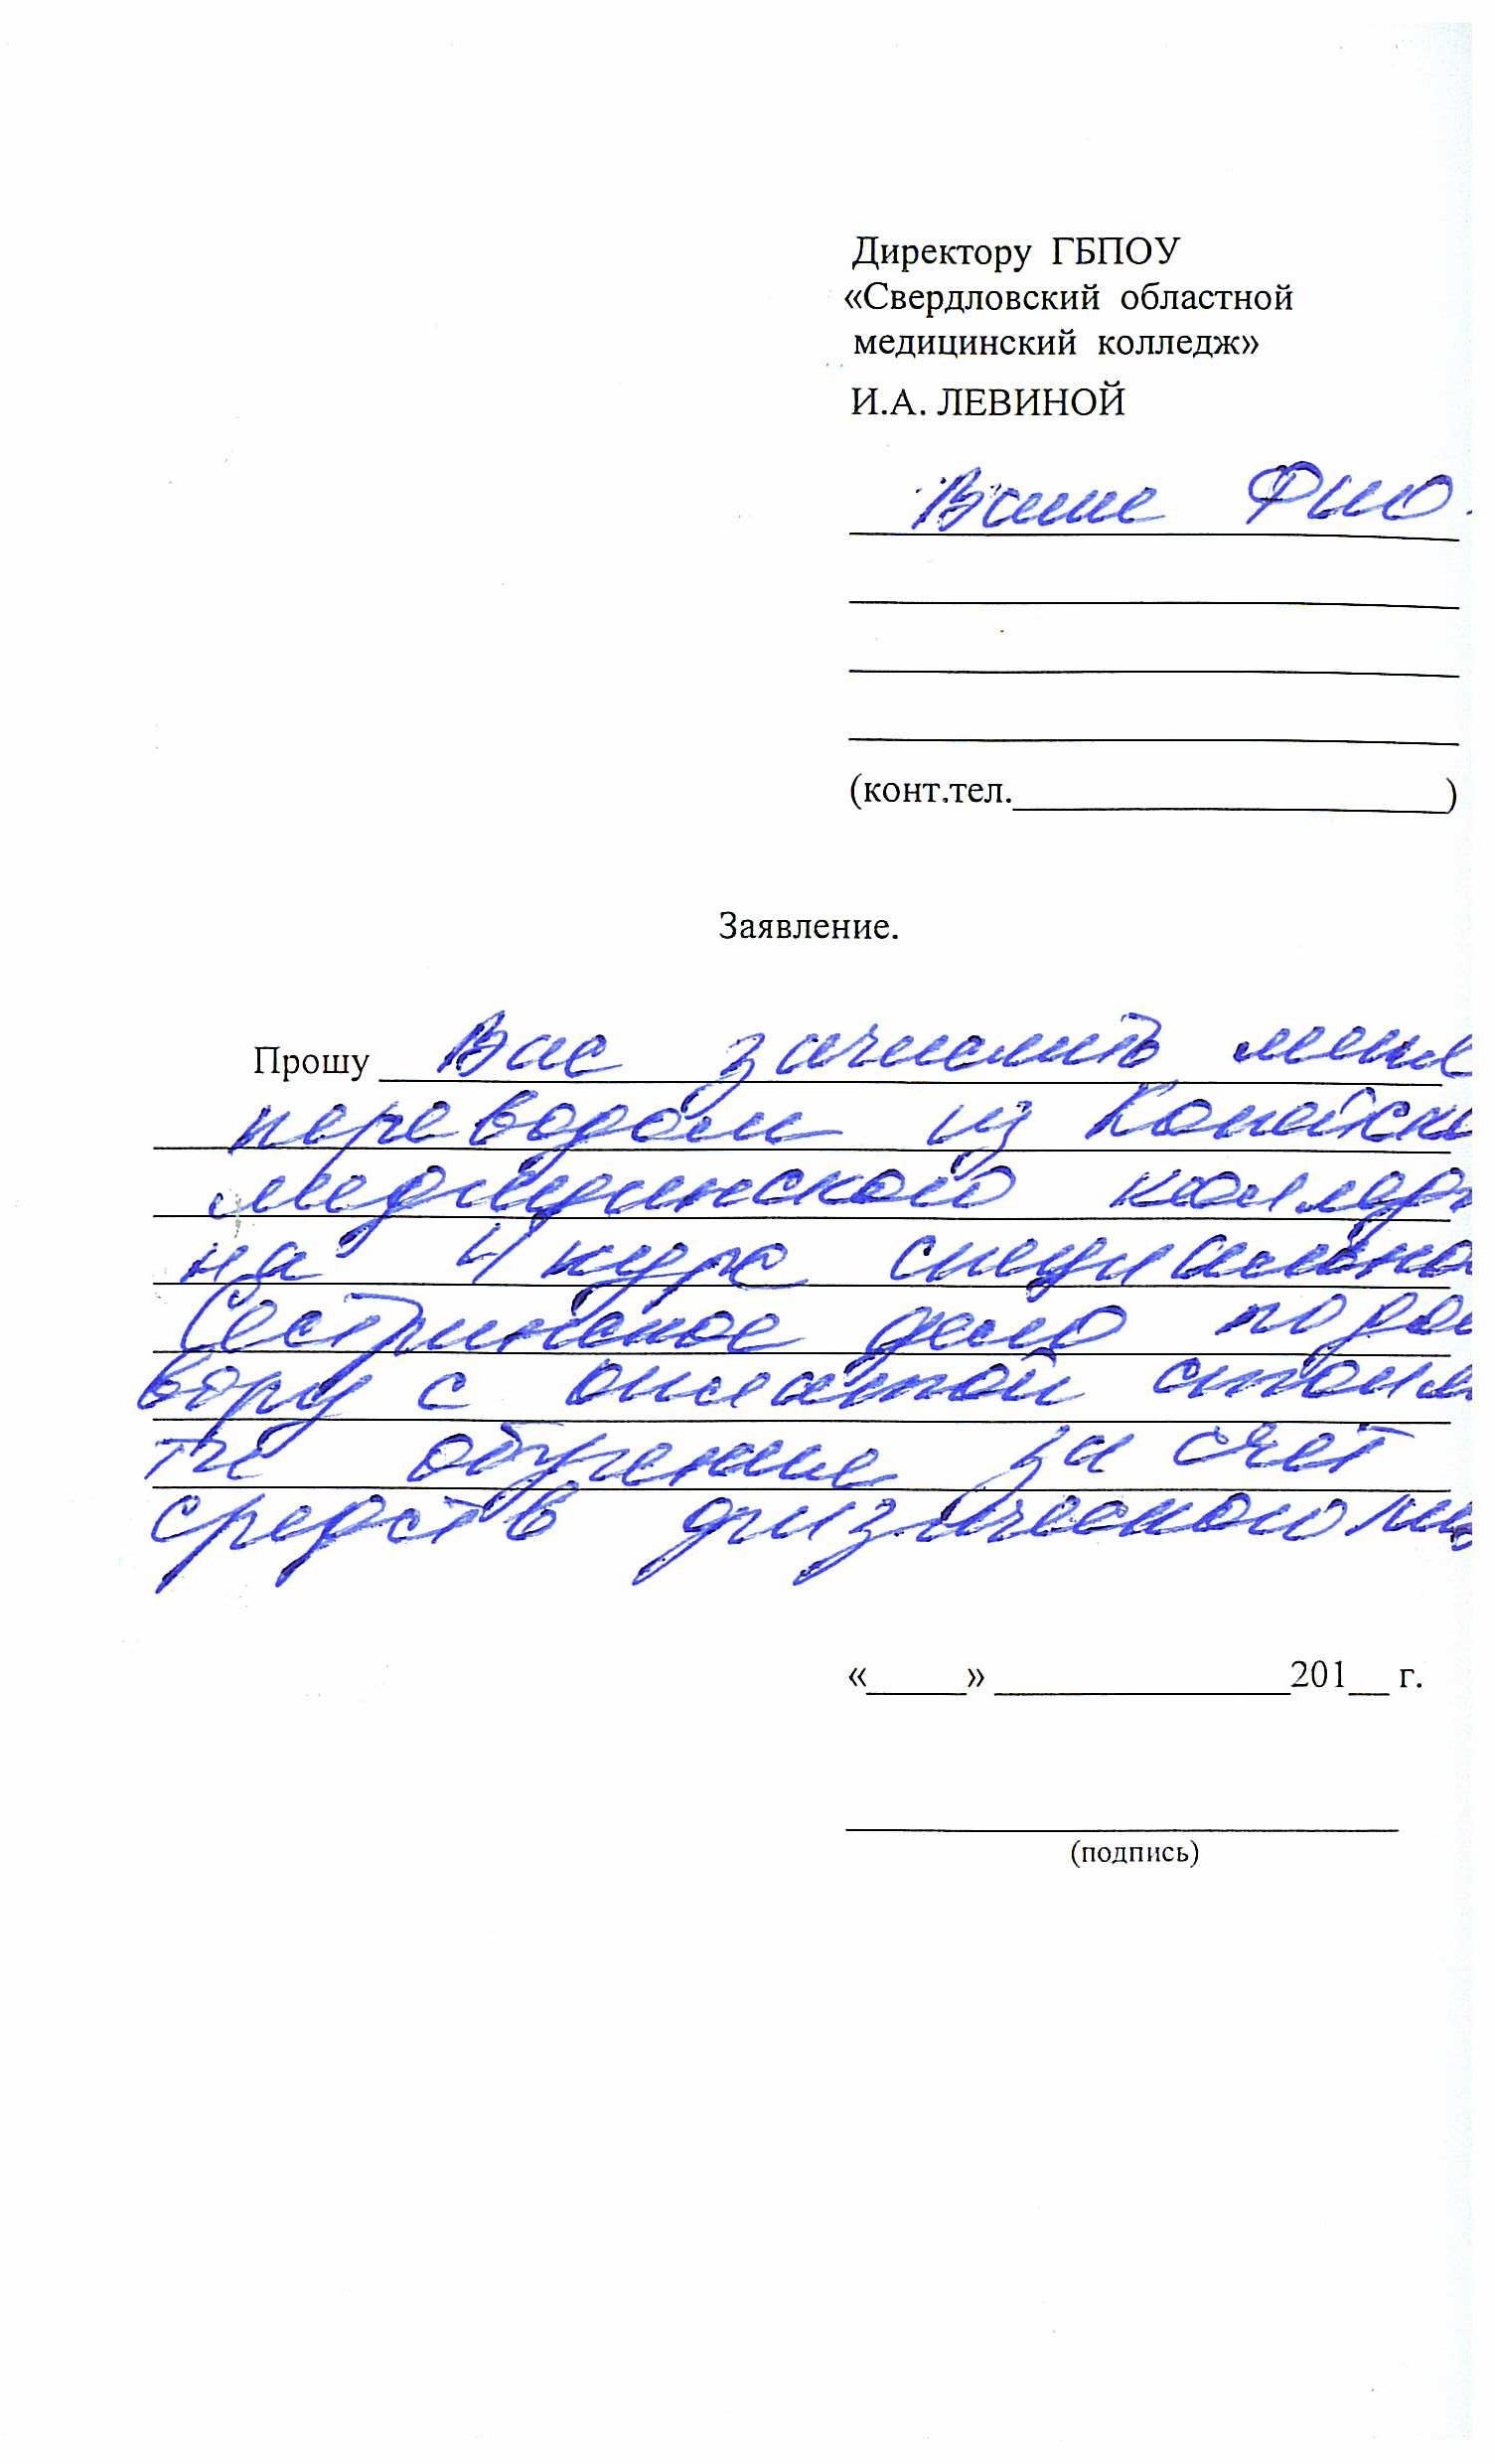 Директору ГБПОУ
«Свердловский областной
медицинский колледж»
И.А. ЛЕВИНОЙ
Ваше ФИО.
(конт.тел.______)
Заявление.
Прошу Вас зачислить мене
переводом из Копейско
медицинского коллед
на 4 курс специально
Сестринское дело по дог
вору с оплатой стоим
ти обучение за счет
средств физического ли
«___» ______201__ г.
(подпись)